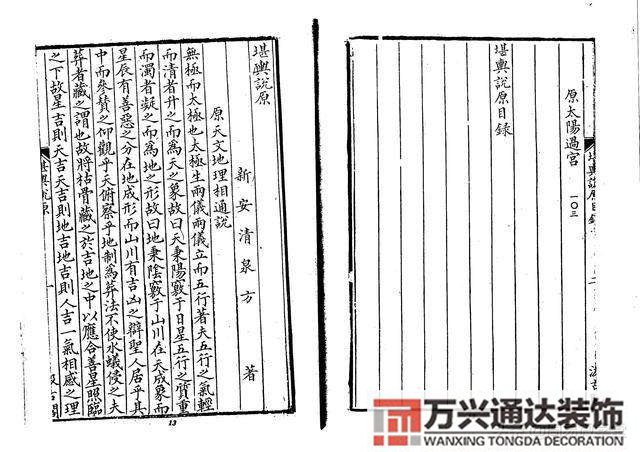 原太陽過宮 一〇三
堪輿說原目錄
堪輿說原
新安清泉方 著
原天文地理相通說
無極而太極也太極生兩儀兩儀立而五行著夫五行之氣輕
而清者升之而爲天之象故曰天秉陽竅于日星五行之質重
而濁者凝之而爲地之形故曰地秉陰竅于山川在天成象而
星辰有善惡之分在地成形而山川有吉凶之辯聖人居乎其
中而參贊之仰觀乎天俯察乎地制爲葬法不使水蟻侵之夫
葬者藏之謂也故將枯骨藏之於吉地之中以應合善星照臨
之下故星吉則天吉天吉則地吉地吉則人吉一氣相感之理
堪輿說原
一
13
万兴通达装饰
WANXING TONGDA DECORATION